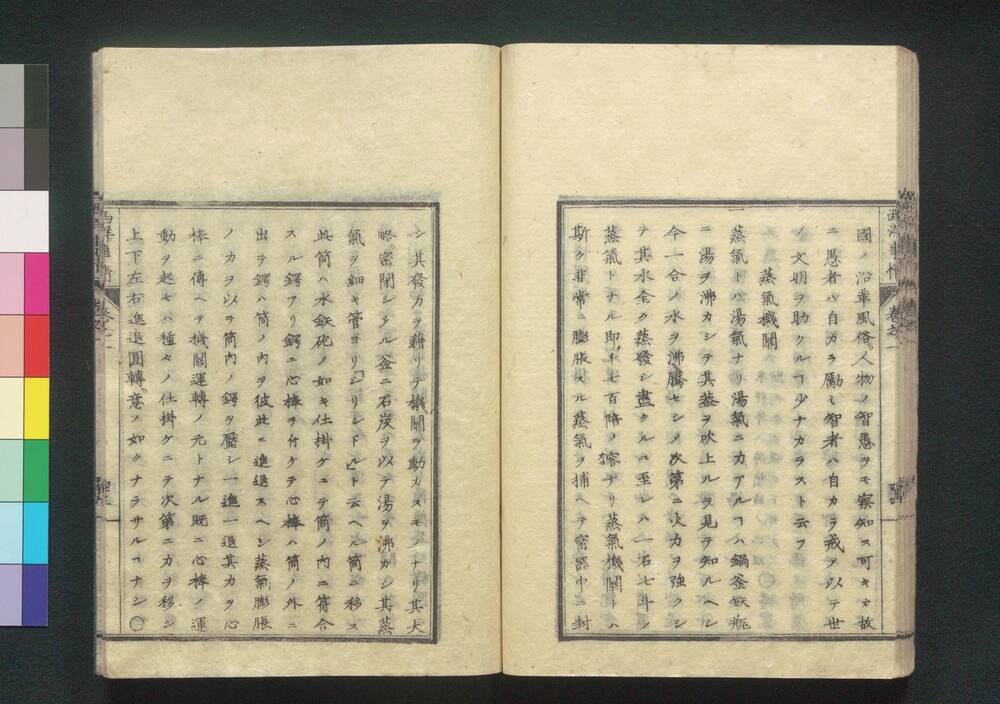 國ノ沿革風俗人物ノ智愚ヲモ察知ス可キヌ故
ニ愚者ハ自カラ勵ミ智者ハ自カラ戒メ以テ世
ノ文明ヲ助クルヿ少ナカラスト云フ
蒸氣機關
一蒸氣トハ湯氣ナリ湯氣ニ力アルヿハ鍋釜鉄瓶
ニ湯ヲ沸カシテ其蓋ヲ吹上ルヲ見テ知ルヘシ
今一合ノ水ヲ沸騰セシメ次第ニ火力ヲ強クシ
テ其水全ク蒸發シ盡クルニ至レハ一石七斗ノ
蒸氣トナル即チ千七百陪ノ容ナリ蒸氣機關トハ
斯ク非常ニ膨脹スル蒸氣ヲ捕ヘテ密器中ニ封
シ其發力ヲ藉リテ機關ヲ動カスモノナリ其大
略密閉シタル釜ニ石炭ヲ以テ湯ヲ沸カシ其蒸
氣ヲ細キ管ヨリ「シリンドル」ト云ヘル筒ニ移ス
此筒ハ水鉄砲ノ如キ仕掛ケニテ筒ノ内ニ符合
スル鍔アリ鍔ニ心棒ヲ付ケテ心棒ハ筒ノ外ニ
出テ鍔ハ筒ノ内ヲ彼此ニ進退スヘシ蒸氣膨脹
ノ力ヲ以テ筒内ノ鍔ヲ壓シ一進一退其力ヲ心
棒ニ傳ヘテ機關運轉ノ元トナル既ニ心棒ノ運
動ヲ起セハ種々ノ仕掛ケニテ次第ニ力ヲ移シ
上下左右進退圓轉意ノ如クナラサルヿナシ〇